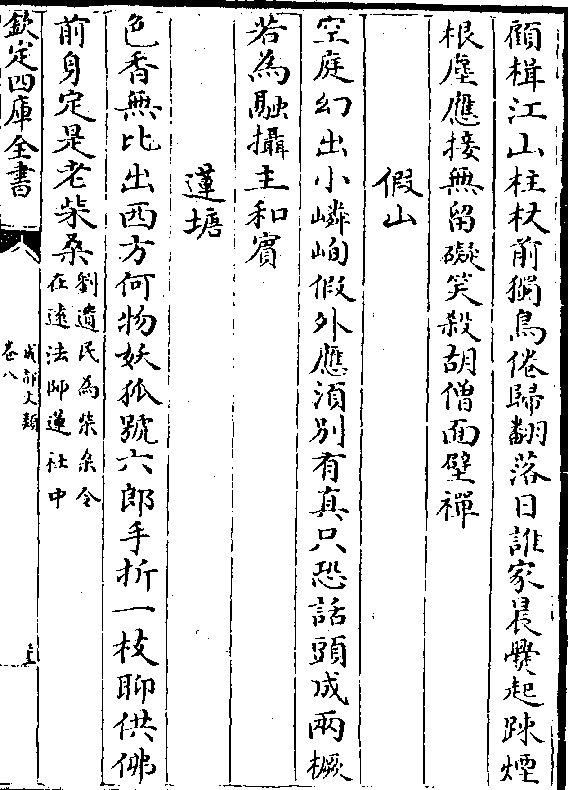 顧楫江山柱杖前獨鳥倦歸翻落日誰家晨爨起踈煙
根塵應接無留礙笑殺胡僧面壁禪
假山
空庭幻出小嶙峋假外應須别有真只恐話頭成兩橛
若為融攝主和賓
蓮塘
色香無比出西方何物妖狐號六郎手折一枝聊供佛
前身定是老柴桑劉遺民為柴桑令在逺法師蓮社中
欽定四庫全書
成都文類
卷八